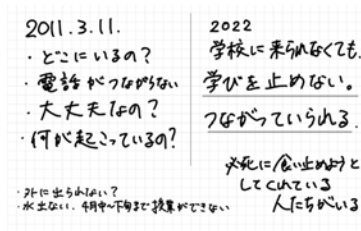 2011.3.11.
・どこにいるの？
・電話がつながらない
・大丈夫なの？
・何が起こっているの？
・外に出られない？
・水出ない、4月中〜下旬まで授業ができない
2022
学校に来られなくても、
学びを止めない。
つながっていられる。
必死に食い止めようと
してくれている
人たちがいる